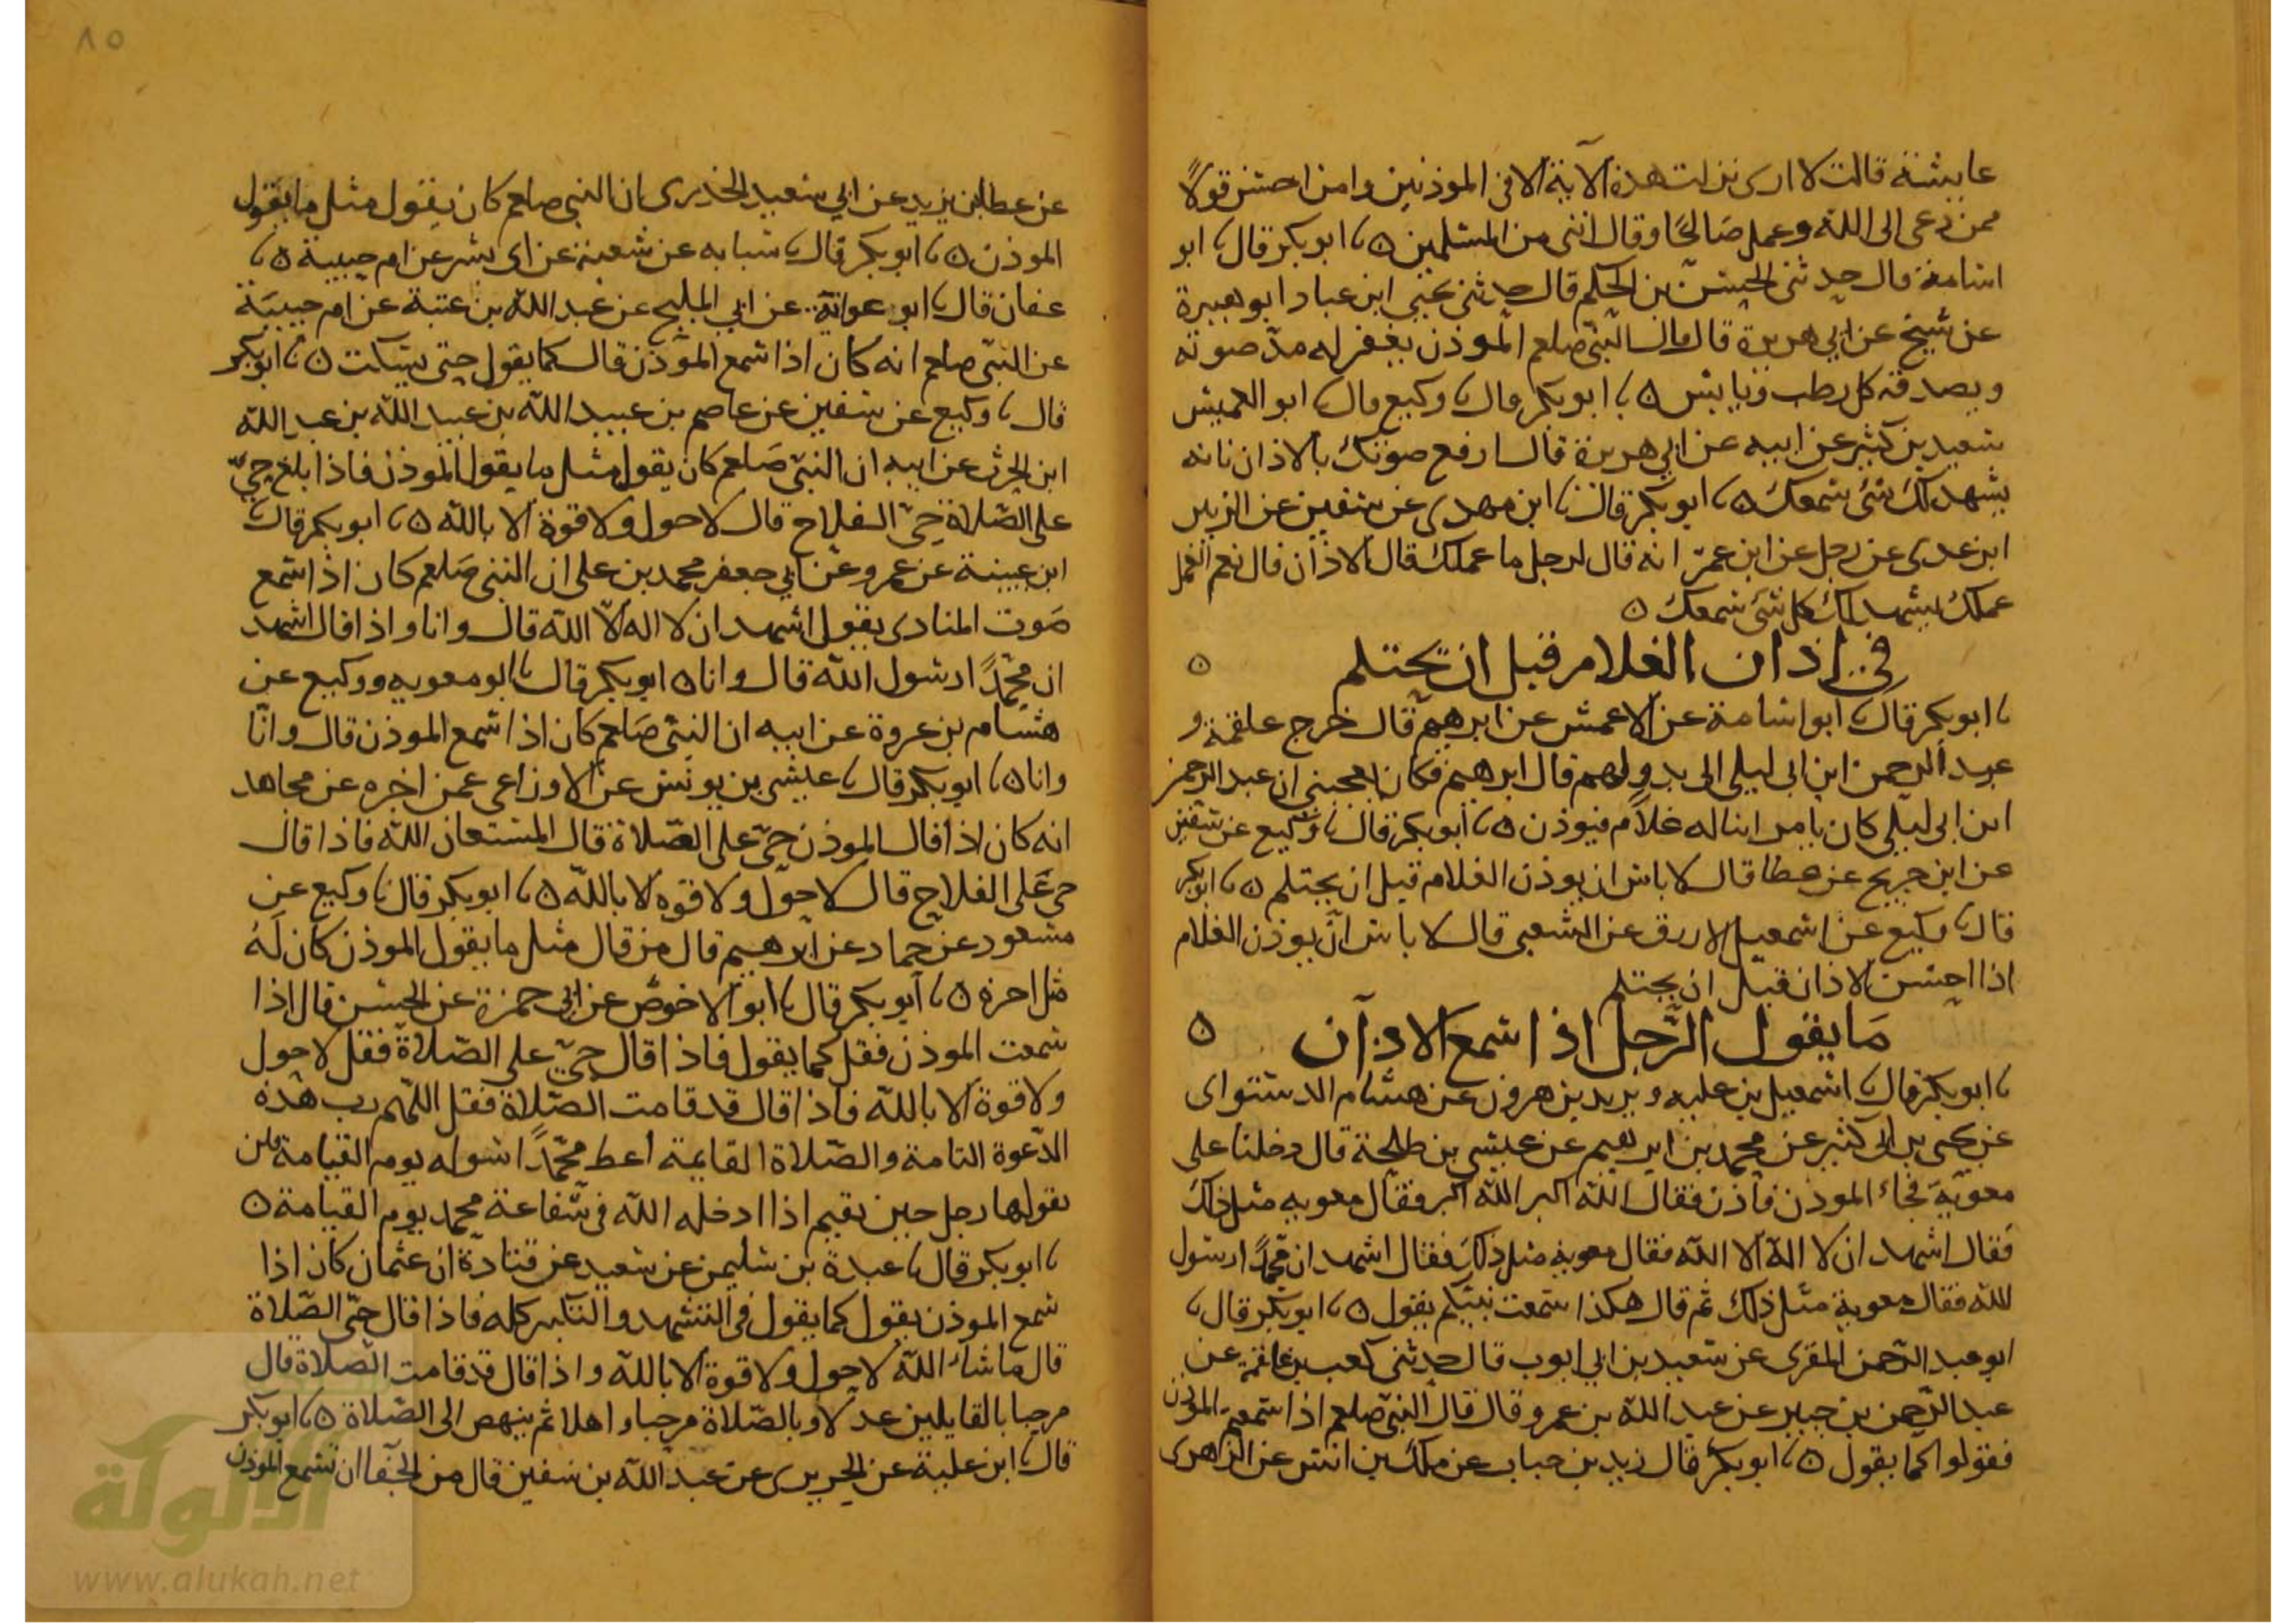 عايشة قالت لا ارى نزلت هذه الآية الا فى الموذنين وامن احسن قولاً
ممن دعى الى الله وعمل صَالحًا وقال اننى من المسلمين ٥ ، ابو بكر قال ، ابو
اسامة قال حدثنى الحسن بن الحكم قال حدثنى يحيى ابن عباد ابو هبيرة
عن شيخ عن ابي هريرة قال قال النبيّ صلعم المؤذن يغفر له مدّ صوته
ويصدقه كل رطب ويابس ٥ ، ابو بكر قال ، وكيع قال ، ابو العميس
سعيد بن كثير عن ابيه عن ابي هريرة قال ارفع صوتك بالاذان فانه
يشهد لك شئ سمعك ٥ ، ابو بكر قال ، ابن مهدى عن سفين عن الزبير
ابن عدى عن رجل عن ابن عمرَ انه قال لرجل ما عملك قال الاذان قال نعم العمل
عملك يشهد لك كل شئ سمعك ٥
في اذان الغلام قبل ان يحتلم ٥
، ابو بكر قال ، ابو اسامة عن الاعمش عن ابرهيم قال خرج علقمة و
عبد الرحمن ابن ابى ليلى الى بدو لهم قال ابرهيم فكان يعجبنى ان عبد الرحمن
ابن ابى ليلى كان يامر ابنا له غلام فيوذن ٥ ، ابو بكر قال ، وكيع عن سفين
عن ابن جريج عن عطا قال لا باس ان يوذن الغلام قبل ان يحتلم ٥ ، ابو بكر
قال ، وكيع عن اسمعيل الازرق عن الشعبى قال لا باس ان يوذن الغلام
اذا احسن الاذان قبل ان يحتلم
مَا يقول الرَّجل اذا سمع الاذان ٥
، ابو بكر قال ، اسمعيل بن عليه ويزيد بن هرون عن هشام الدستواى
عن يحى بن ابى كثير عن محمد بن ابرهيم عن عيسى بن طلحة قال دخلنا على
معويَةَ فجاء الموذن فاذن فقال الله اكبر الله اكبر فقال معويه مثل ذلك
فقال اشهد ان لا اله الا الله فقال معوية مثل ذلك فقال اشهد ان محمّدًا رسول
لله فقال معوية مثل ذلك ثم قال هكذا سمعت نبيّكم يقول ٥ ، ابو بكر قال ،
ابو عبد الرّحمن المقرى عن سعيد بن ابي ايوب قال حدثنى كعب بن علقمة عن
عبد الرّحمن بن جبير عن عبد الله بن عمرو قال قال النبيّ صلعم اذا سمعتم الموذن
فقولوا كما يقول ٥ ، ابو بكر قال زيد بن حباب عن ملك بن انس عن الزهرى
٨٥
عن عطا بن يزيد عن ابي سعيد الخدرى ان النبي صلعم كان يقول مثل ما يقول
الموذن ٥ ، ابو بكر قال ، شبابه عن شعبة عن اى بشر عن ام حبيبة ٥ ،
عفان قال ، ابو عوانة عن ابي المليح عن عبد الله بن عتبة عن ام حبيبَة
عن النبيّ صلعم انه كان اذا سمع المؤذن قال كما يقول حتى يسكت ٥ ، ابو بكر
قال ، وكيع عن سفين عن عاصم بن عبيد الله بن عبيد الله بن عبد الله
ابن الحرث عن ابيه ان النبيّ صَلعم كان يقول مثل ما يقول الموذن فاذا بلغ حيّ
على الصّلاة حيّ الفلاح قال لا حول ولا قوة الا بالله ٥ ، ابو بكر قال ،
ابن عيينة عن عمرو عن ابي جعفر محمد بن على ان النبى صَلعم كان اذا سمع
صَوت المنادى يقول اشهد ان لا اله الاّ الله قال وانا واذا قال اشهد
ان محمّدًا رسول الله قال وانا ٥ ابو بكر قال ، ابو معويه ووكيع عن
هشام بن عروة عن ابيه ان النبيّ صَلعم كان اذا سمع الموذن قال وانا
وانا ٥ ، ابو بكر قال ، عيسى بن يونس عن الاوزاعى عمن اخبره عن مجاهد
انه كان اذا قال الموذن حيّ على الصّلاة قال المستعان الله فاذا قال
حى عَلى الفلاح قال لا حول ولا قوه الا بالله ٥ ، ابو بكر قال ، وكيع عن
مسعود عن حماد عن ابرهيم قال من قال مثل ما يقول الموذن كان لَهُ
مثل اجره ٥ ، ابو بكر قال ، ابو الاحوص عن ابي حمزة عن الحسن قال اذا
سمعت الموذن فقل كما يقول فاذا قال حيّ على الصّلاة فقل لا حول
ولا قوة الا بالله فاذا قال قد قامت الصّلاة فقل اللّهم رب هذه
الدّعوة التامة والصّلاة القايمة اعط محمّدًا سوله يوم القيامة فلن
يقولها رجل حين يقيم اذا ادخله الله فى شفاعة محمد يوم القيامة ٥
، ابو بكر قال ، عبدة بن سليمن عن سعيد عن قتادة ان عثمان كان اذا
سمع الموذن يقول كما يقول فى التشهد والتكبير كله فاذا قال حيّ الصّلاة
قال ما شاء الله لا حول ولا قوة الا بالله واذا قال قد قامت الصّلاة قال
مرحبا بالقايلين عدلا وبالصّلاة مرحبا واهلا ثم ينهض الى الصّلاة ٥ ، ابو بكر
قال ، ابن علية عن الجريرى عن عبد الله بن سفين قال من الجفا ان تسمع الموذن
الألوكة
www.alukah.net